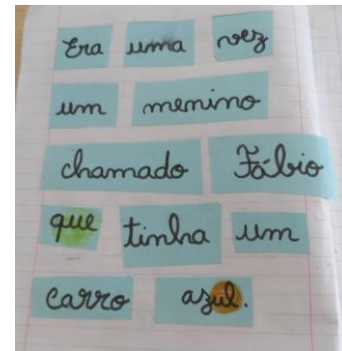 Era uma vez
um menino
chamado Fábio
que tinha um
carro azul.